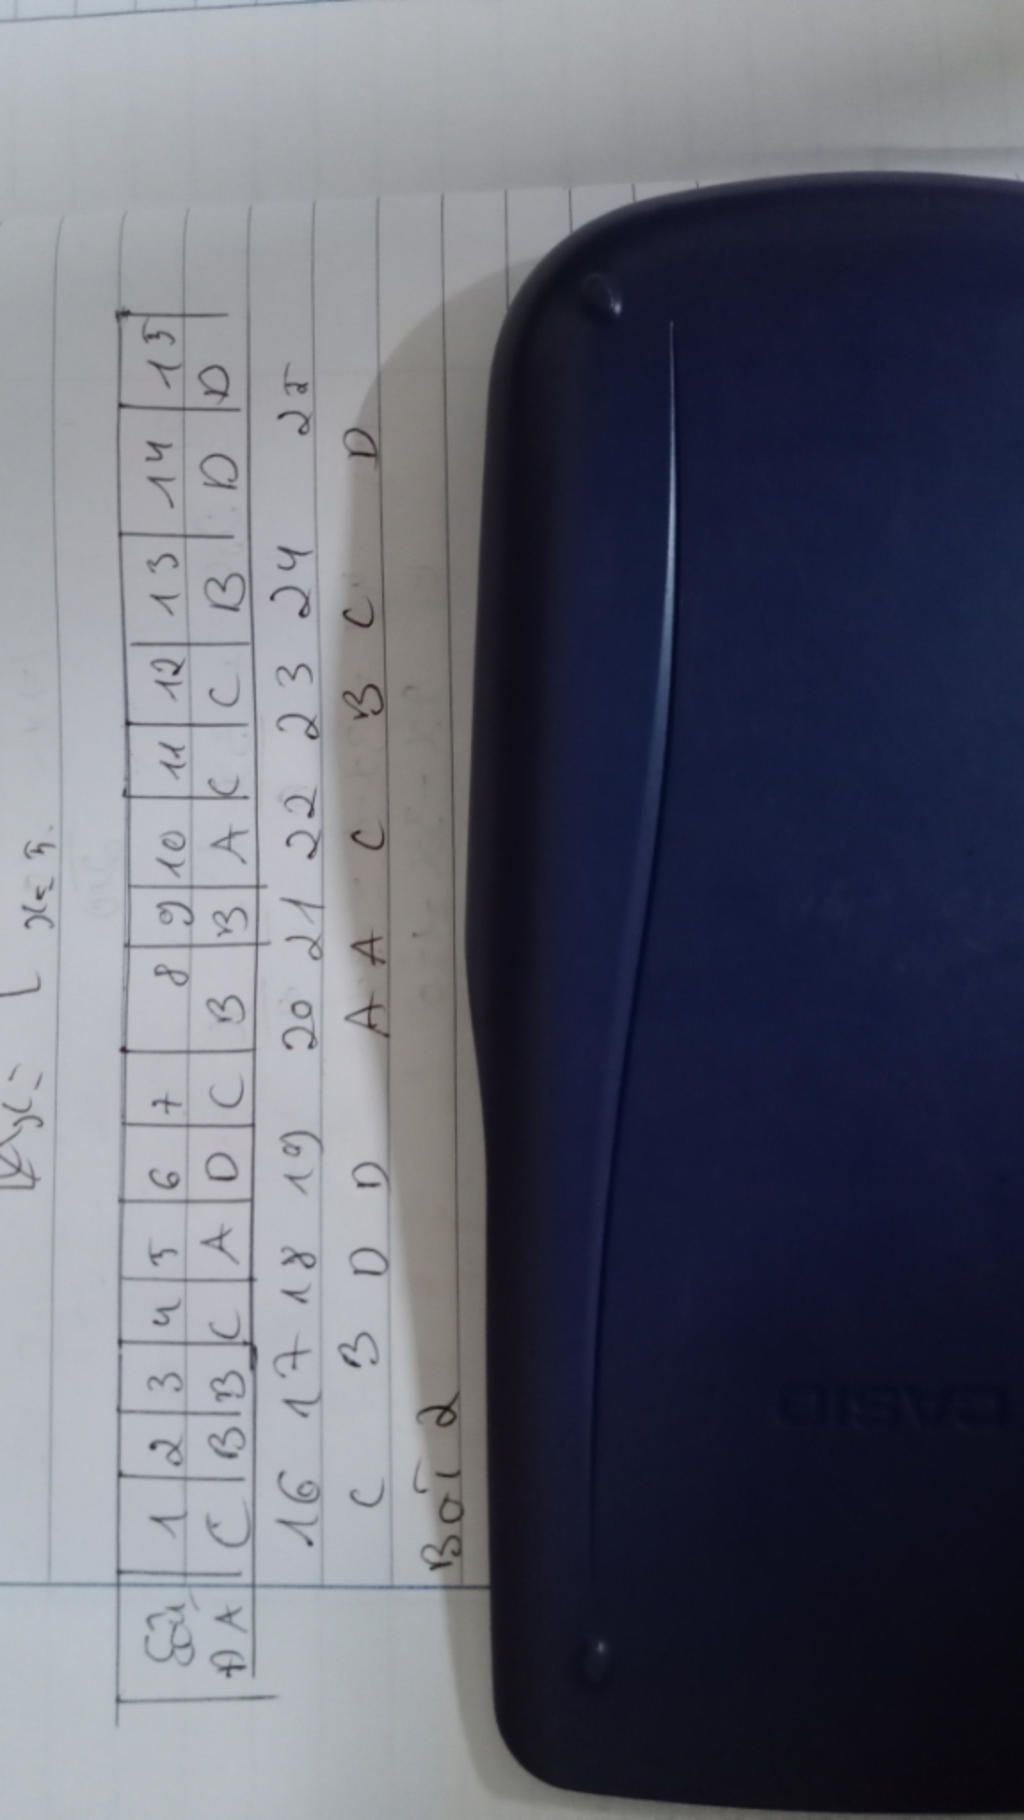 x=5.
Câu 1 2 3 4 5 6 7 8 9 10 11 12 13 14 15
ĐA C B B C A D C B B A C C B D D
16 17 18 19 20 21 22 23 24 25
C B D D A A C B C D
Bài 2
CASIO